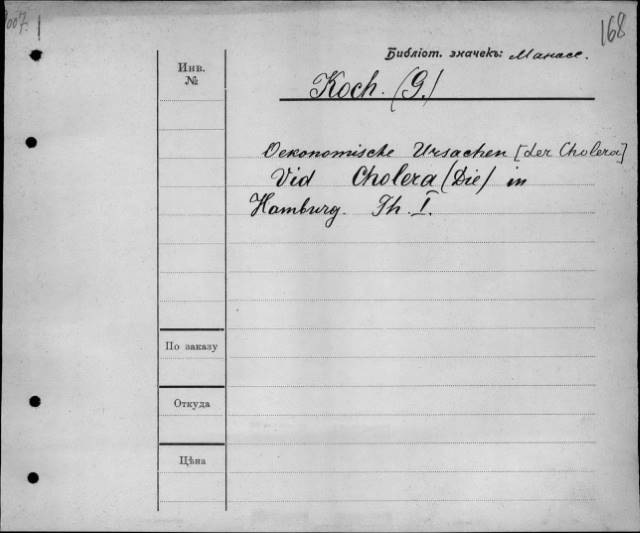 168
Библіот. значекъ: Манасс.
Инв.
№
Koch. (G.)
Oekonomische Ursachen [der Cholera]
Vid Cholera (Die) in
Hamburg. Th. I.
По заказу
Откуда
Цѣна